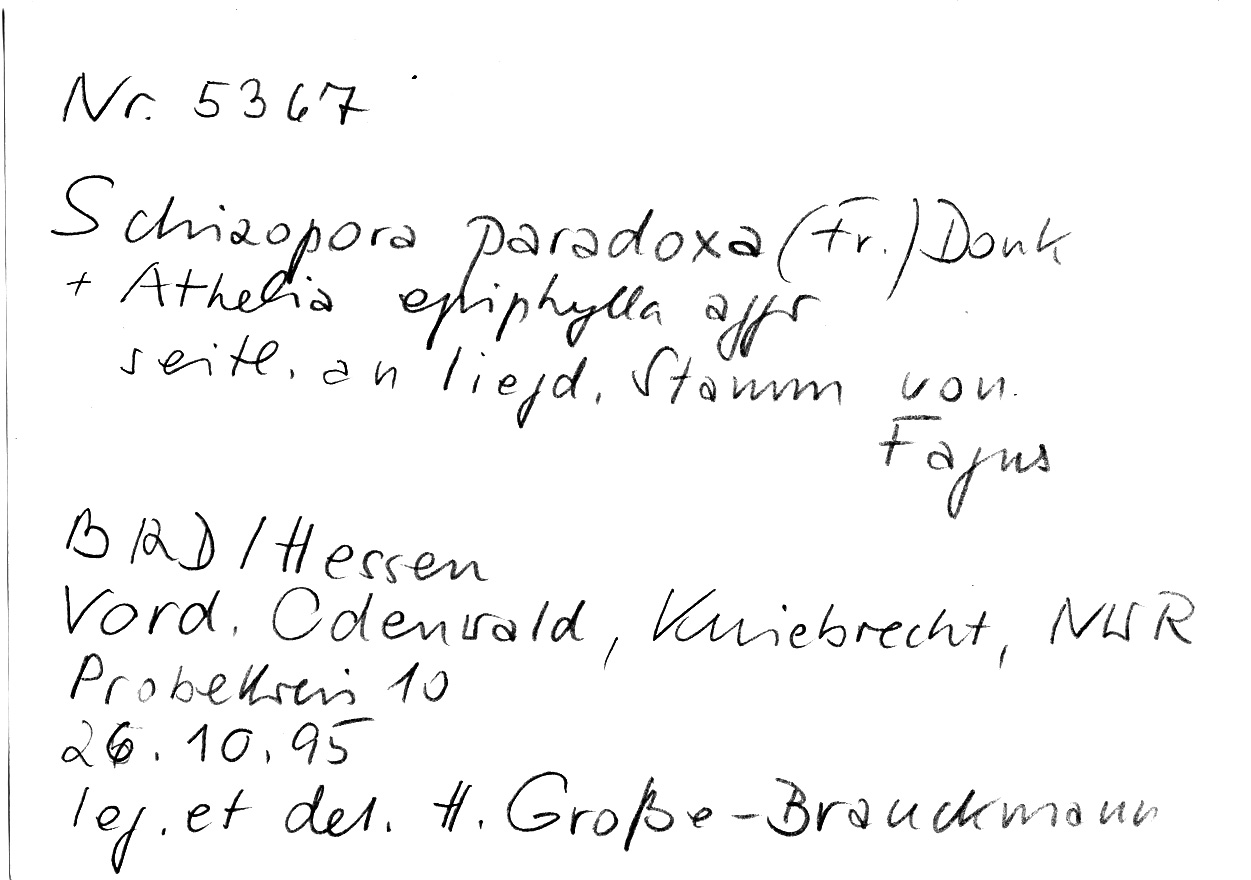 Nr. 5367
Schizopora paradoxa (Fr.) Donk
+ Athelia epiphylla aggr
seitl. an liegd. Stamm von
Fagus
BRD/Hessen
Vord. Odenwald, Kniebrecht, NWR
Probekreis 10
26.10.95
leg. et det. H. Große-Brauckmann